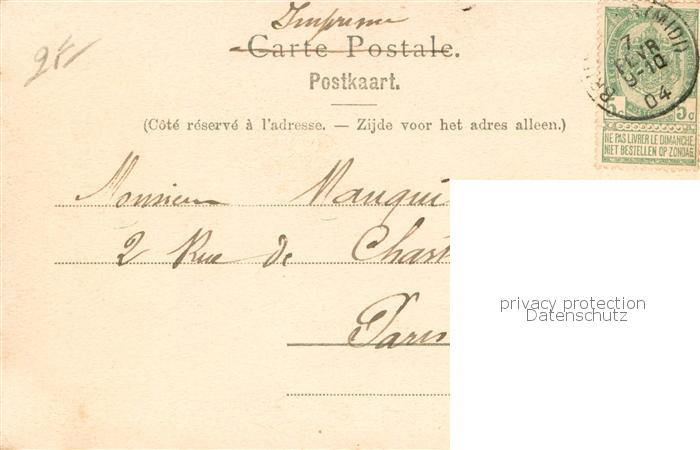 Imprimé
Carte Postale.
Postkaart.
(Côté réservé à l'adresse. — Zijde voor het adres alleen.)
Monsieur Mauqui
2 Rue de Chast
Paris
(MIDI)
7
FEVR
04
5c
NE PAS LIVRER LE DIMANCHE
NIET BESTELLEN OP ZONDAG
privacy protection
Datenschutz